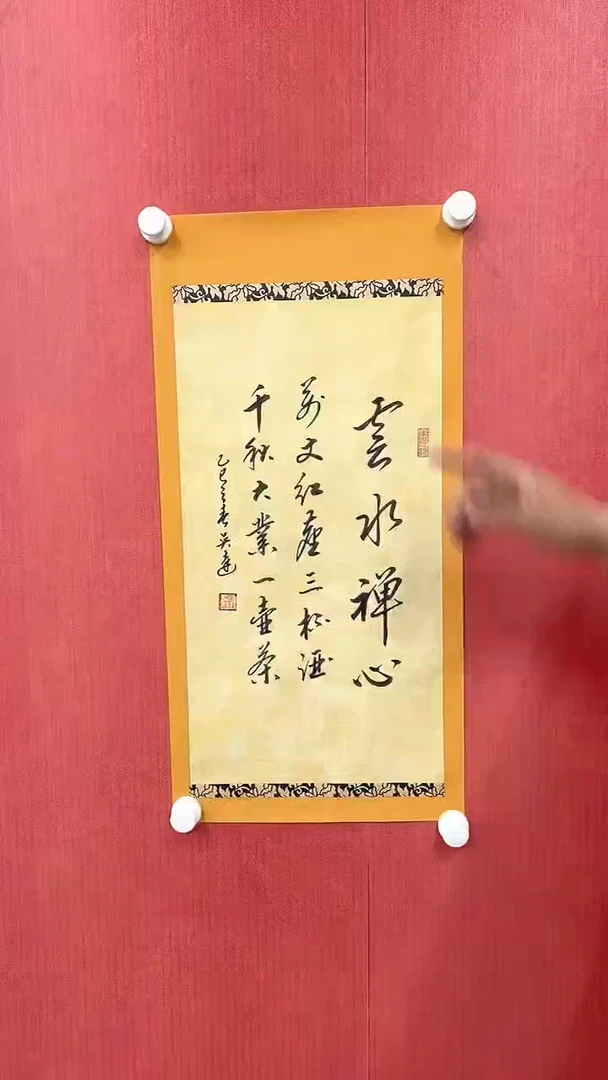 雲水禅心
萬丈紅塵三杯酒
千秋大業一壺茶
乙巳之春